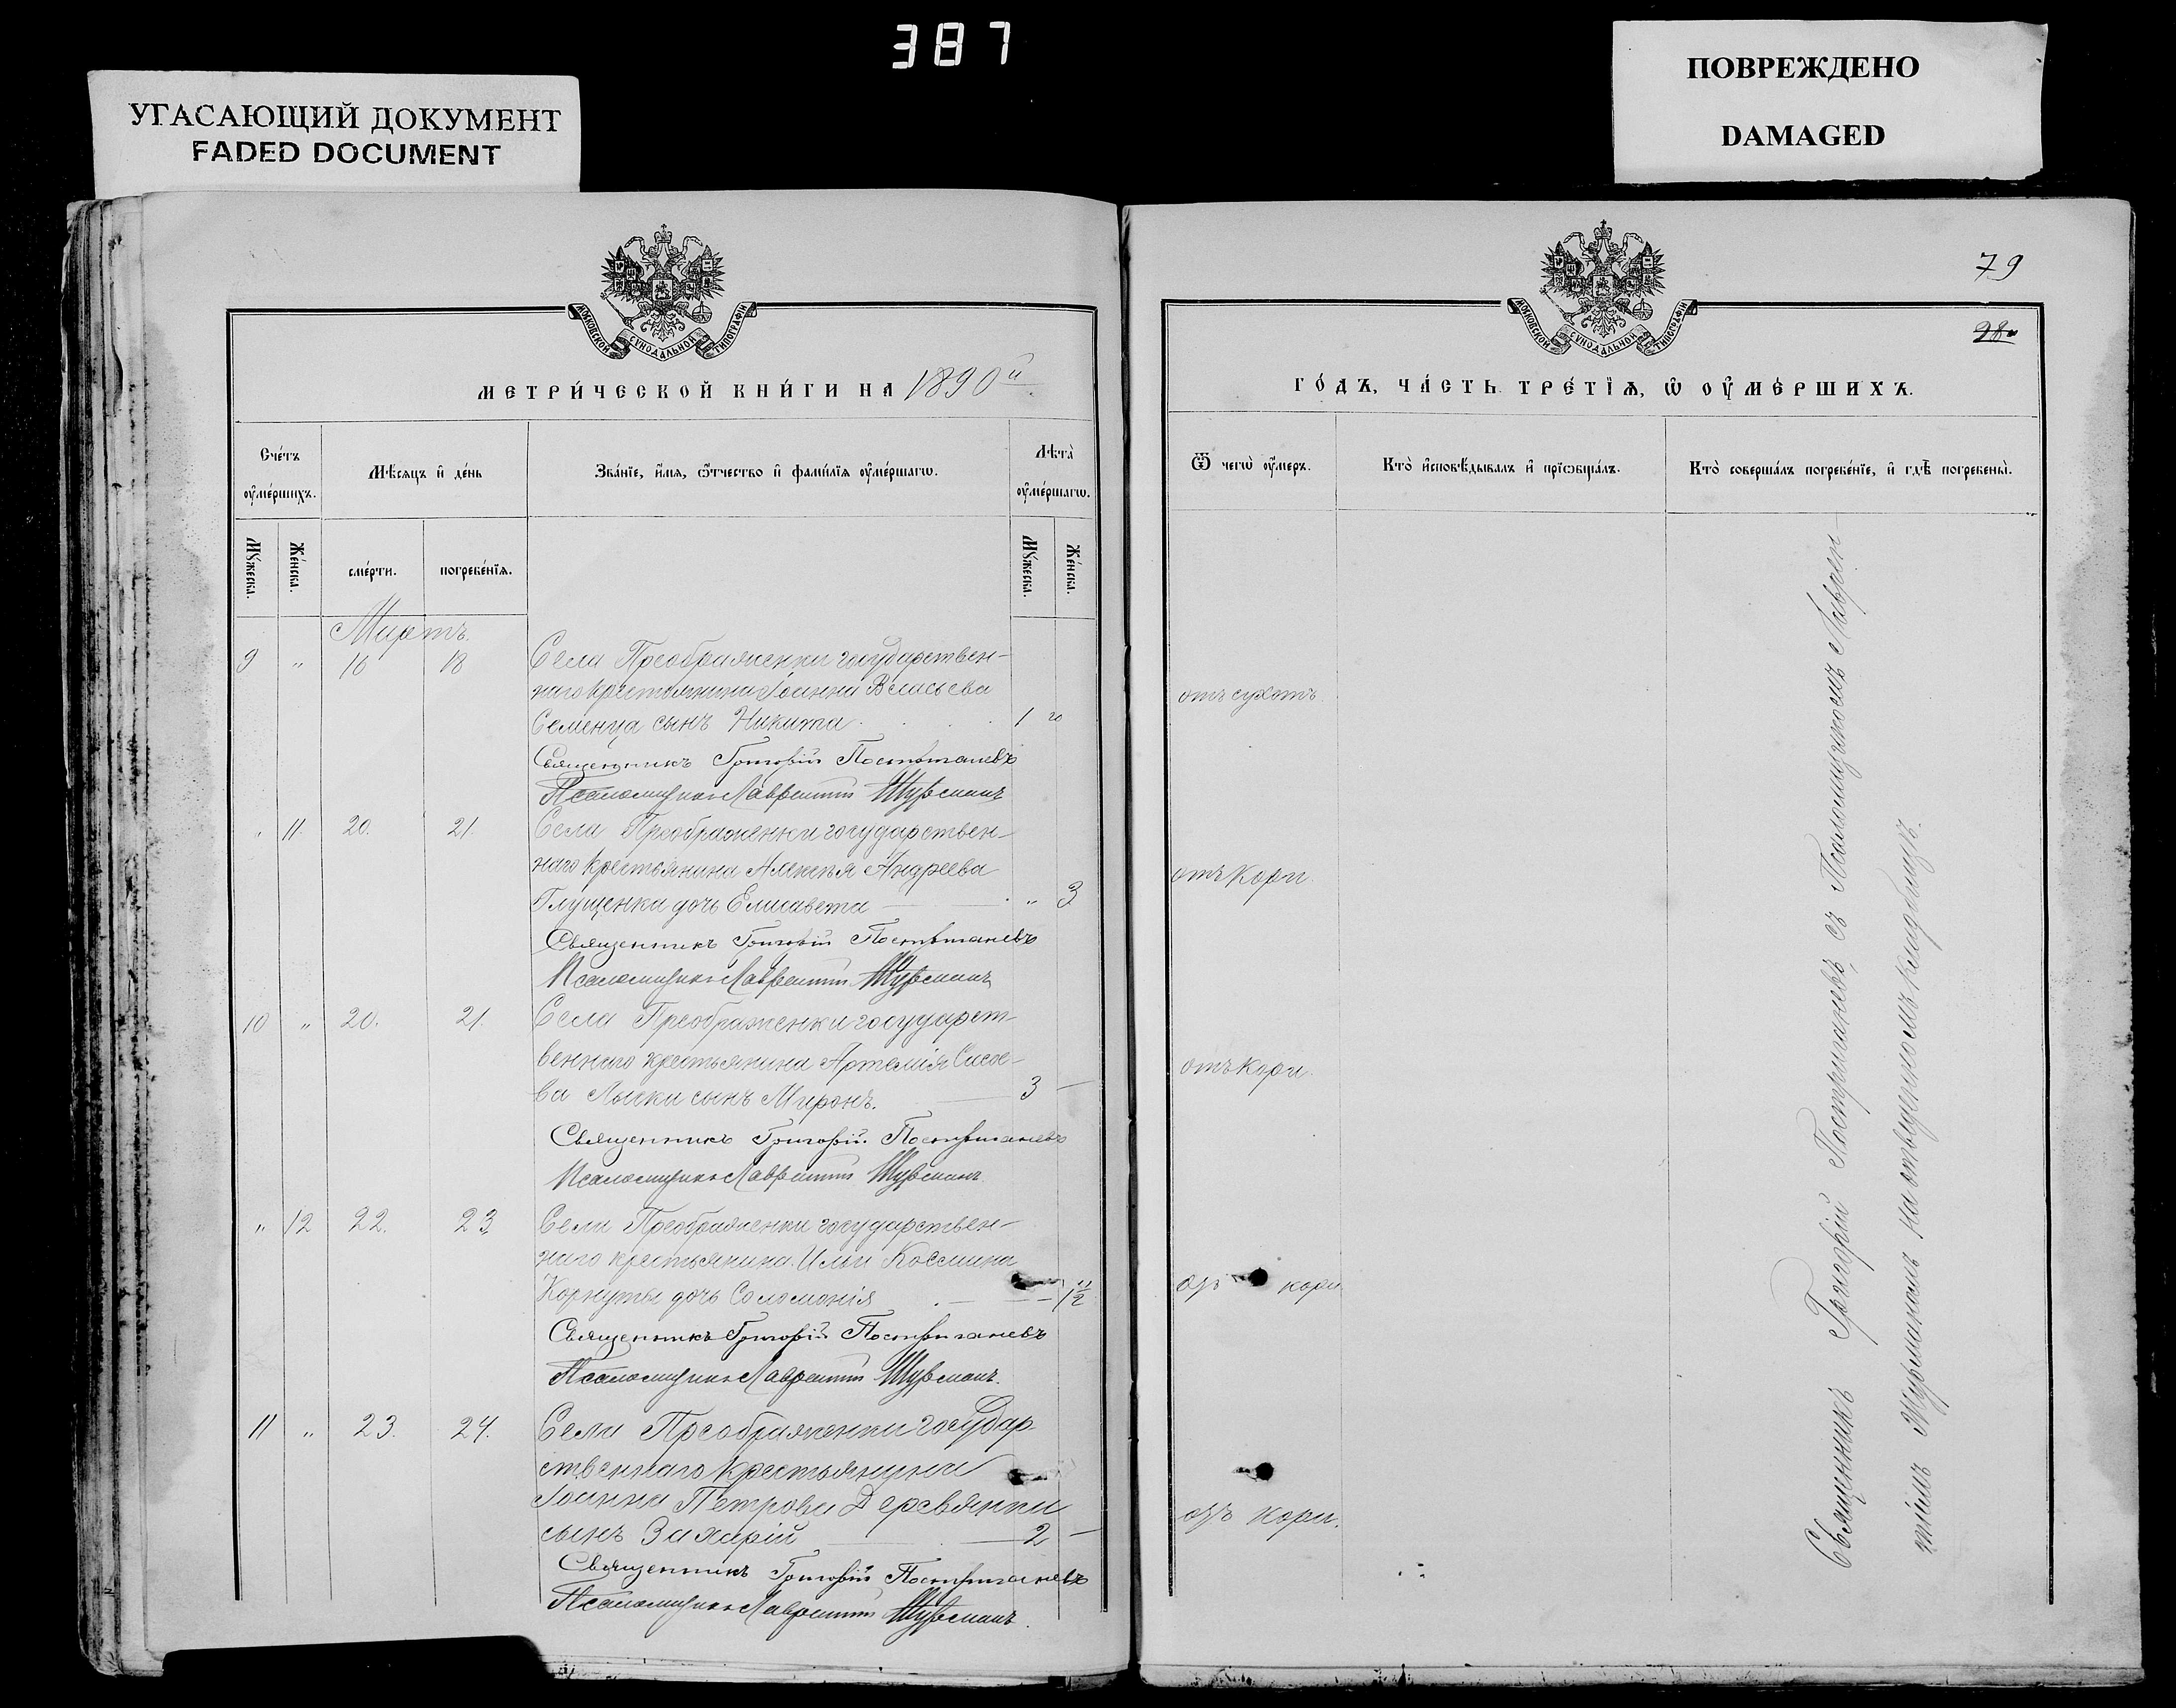 387
УГАСАЮЩИЙ ДОКУМЕНТ
FADED DOCUMENT
ПОВРЕЖДЕНО
DAMAGED
МОСКОВСКОЙ СУНОДАЛЬНОЙ ТИПОГРАФІИ
МЕТРИ́ЧЕСКОЙ КНИ́ГИ НА 1890й
Сче́тъ ᲂу҆ме́ршихъ.
Мѣ́сяцъ и҆ де́нь
Зва́нїе, и҆́мя, ѻ҆́тчество и҆ фами́лїя ᲂу҆ме́ршагѡ.
Лѣта̀ ᲂу҆ме́ршагѡ.
Мꙋ́жеска.
Же́нска.
сме́рти.
погребе́нїя.
Мꙋ́жеска.
Же́нска.
Мартъ.
9 " 16 18 Села Преображенки государствен-
наго крестьянина Іоанна Власьева
Семенца сынъ Никита 1 го
Священникъ Григорій Постригачевъ
Псаломщикъ Лаврентій Шурманъ
" 11 20. 21. Села Преображенки государствен-
наго крестьянина Алексѣя Андреева
Глущенка дочь Елисавета " 3
Священникъ Григорій Постригачевъ
Псаломщикъ Лаврентій Шурманъ
10 " 20. 21. Села Преображенки государст-
веннаго крестьянина Артемія Сисое-
ва Лыски сынъ Миронъ. 3 —
Священникъ Григорій Постригачевъ
Псаломщикъ Лаврентій Шурманъ.
" 12 22. 23. Села Преображенки государствен-
наго крестьянина Ильи Космина
Корнуты дочь Соломонія 1½
Священникъ Григорій Постригачевъ
Псаломщикъ Лаврентій Шурманъ.
11 " 23. 24. Села Преображенки государ-
ственнаго крестьянина
Іоанна Петрова Деревянки
сынъ Захарій 2 —
Священникъ Григорій Постригачевъ
Псаломщикъ Лаврентій Шурманъ.
79
28
МОСКОВСКОЙ СУНОДАЛЬНОЙ ТИПОГРАФІИ
ГО́ДЪ, ЧА́СТЬ ТРЕ́ТЇЯ, Ѡ҆ ОУ҆МЕ́РШИХЪ.
Ѿ чегѡ̀ ᲂу҆́меръ.
Кто̀ и҆сповѣ́дывалъ и҆ прїѡбща́лъ.
Кто̀ соверша́лъ погребе́нїе, и҆ гдѣ̀ погребены̀.
отъ сухотъ.
отъ кори.
отъ кори.
отъ кори
отъ кори.
Священникъ Григорій Постригачевъ, съ Псаломщикомъ Лаврен-
тіемъ Шурманомъ на отведенномъ кладбищѣ.